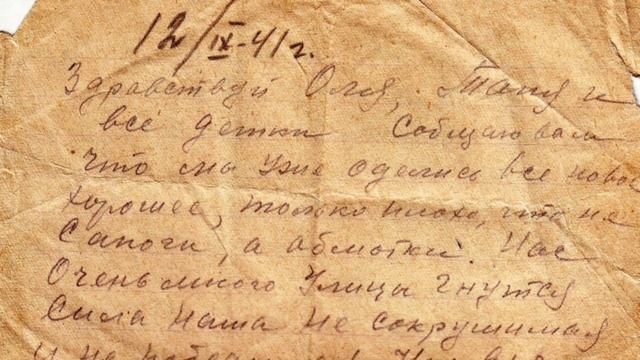 12/IX-41 г.
Здравствуй Оля, Таня и
все детки Сообщаю вам
что мы уже оделись все новое
хорошее, только плохо, что не
сапоги, а обмотки. Нас
очень много Улицы гнутся
Сила наша не сокрушимая
и не